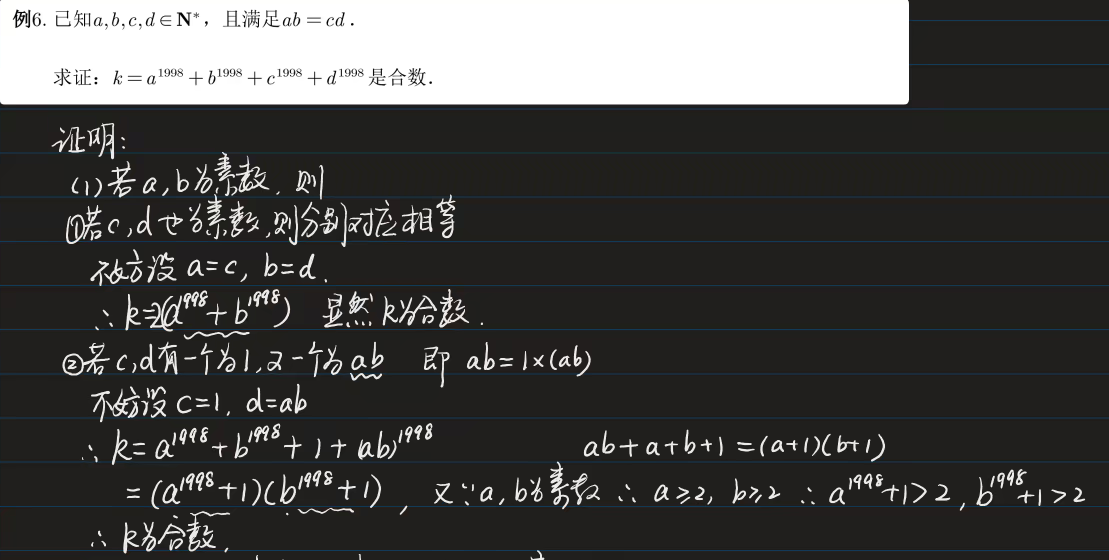 例6. 已知a,b,c,d∈N*，且满足ab=cd．
求证：k=a^1998+b^1998+c^1998+d^1998是合数．
证明：
(1)若a,b为素数，则
①若c,d也为素数,则分别对应相等
不妨设 a=c, b=d.
∴ k=2(a^1998+b^1998) 显然k为合数.
②若c,d有一个为1,又一个为ab 即 ab=1×(ab)
不妨设 c=1, d=ab
∴ k=a^1998+b^1998+1+(ab)^1998 ab+a+b+1=(a+1)(b+1)
=(a^1998+1)(b^1998+1), 又∵a,b为素数 ∴ a≥2, b≥2 ∴ a^1998+1>2, b^1998+1>2
∴ k为合数.